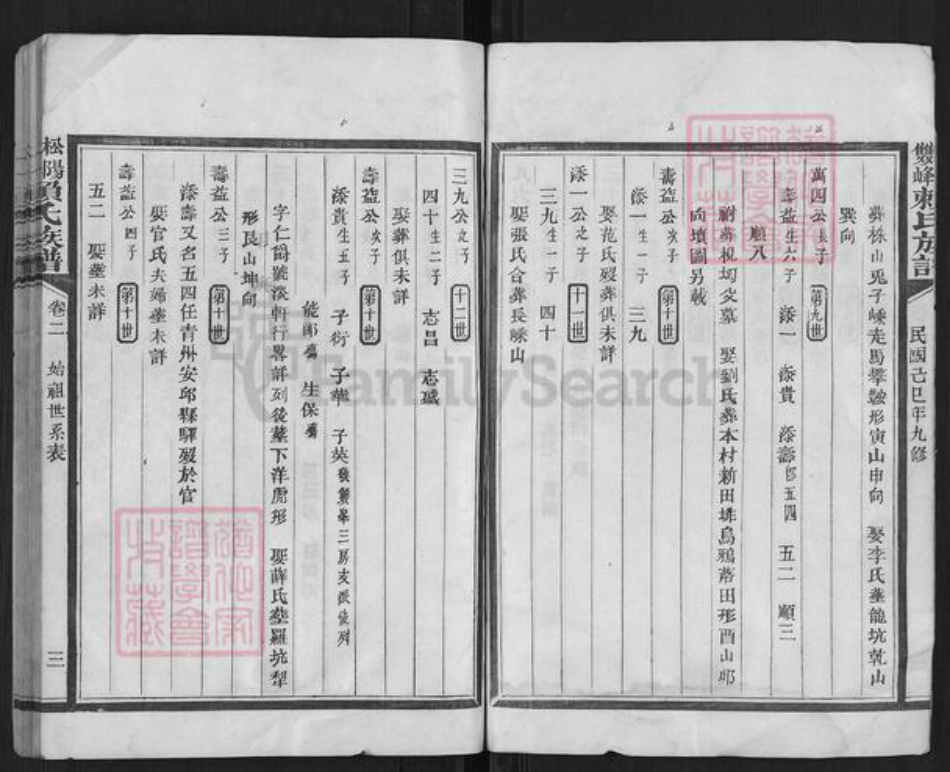 雙峰賴氏族譜
民國己巳年九修
葬株山兎子崠走馬攀鞍形寅山申向 娶李氏塟龍坑乾山
巽向
萬四公長子 第九世
壽益生六子 添一 添貴 添壽即五四 五二 順三
順八
娶劉氏葬本村新田垇烏鴉落田形酉山
向墳圖另載
壽益公次子 第十世
添一生一子 三九
娶范氏歿葬俱未詳
添一公之子 十一世
三九生一子 四十
娶張氏合葬長崠山
三九公之子 十二世
四十生二子 志昌 志盛
娶葬俱未詳
壽益公次子 第十世
添貴生五子 子衍 子華 子英發雙峰三房支派徒列
能郎 生保
字仁爵號淡軒行畧詳列後塟下洋虎形 娶薛氏塟羅坑犁
形艮山坤向
壽益公三子 第十世
添壽又名五四任青州安邱縣驛歿於官
娶官氏夫婦塟未詳
壽益公四子 第十世
五二 娶塟未詳
松陽賴氏族譜
卷二 始祖世系表
三
FamilySearch